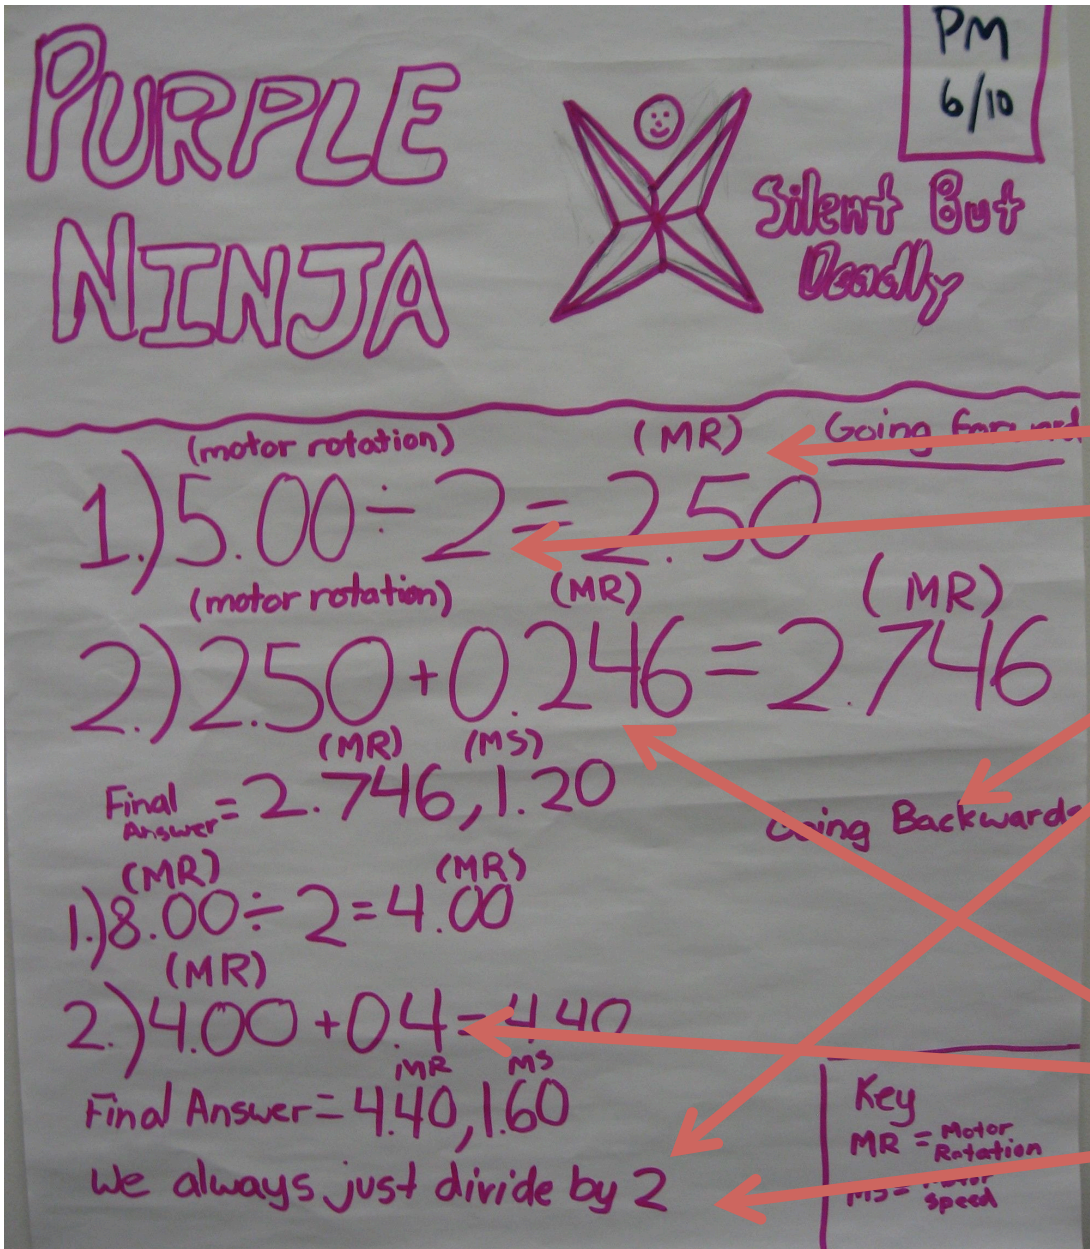 PURPLE
NINJA
PM
6/10
Silent But
Deadly
Going Forward
(motor rotation) (MR)
1.) 5.00 ÷ 2 = 2.50
(motor rotation) (MR) (MR)
2.) 2.50 + 0.246 = 2.746
(MR) (MS)
Final Answer = 2.746, 1.20
Going Backwards
(MR) (MR)
1.) 8.00 ÷ 2 = 4.00
(MR)
2.) 4.00 + 0.4 = 4.40
MR MS
Final Answer = 4.40, 1.60
We always just divide by 2
Key
MR = Motor Rotation
MS = Motor Speed